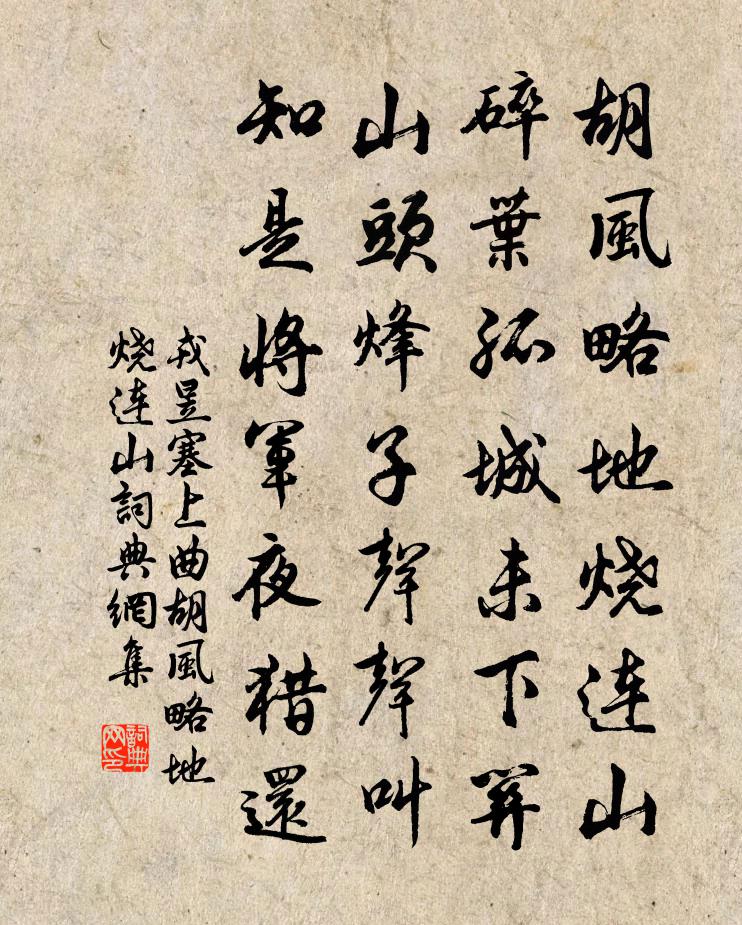 胡風略地烧连山
碎葉孤城未下關
山頭烽子聲聲叫
知是将軍夜猎還
戎昱塞上曲胡風略地
烧连山詞典網集
詞典
网印